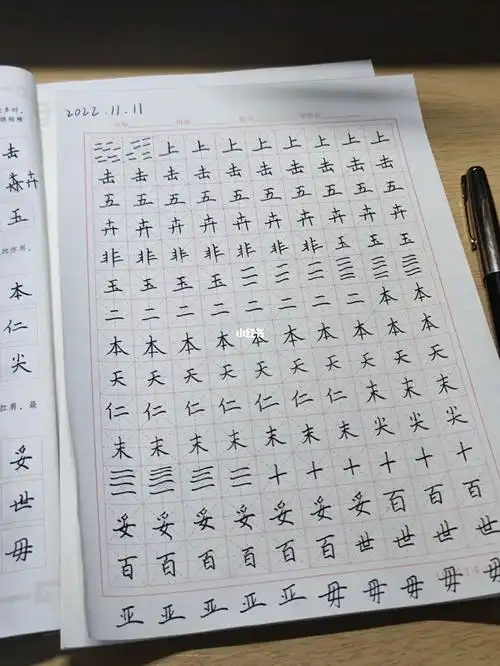 2022.11.11
上 上 上 上 上 上 上 上
击 击 击 击 击 击 击 击 击 击
五 五 五 五 五 五 五 五 五 五
卉 卉 卉 卉 卉 卉 卉 卉 卉 卉
非 非 非 非 非 非 非 玉 玉 玉
玉 玉 玉 玉 三 三 三
二 二 二 二 二 二 二 二 本 本
本 本 本 本 本 本 本 本 本 本
天 天 天 天 天 天 天 天 天 天
仁 仁 仁 仁 仁 仁 仁 仁 末 末
末 末 末 末 末 末 末 尖 尖 尖
十 十 十 十 十 十
妥 妥 妥 妥 妥 妥 妥 百 百 百
百 百 百 百 百 百 世 世 世 世
亚 亚 亚 亚 亚 毋 毋 毋 毋 毋
击
卉
玉
本
仁
尖
妥
世
毋
小红书